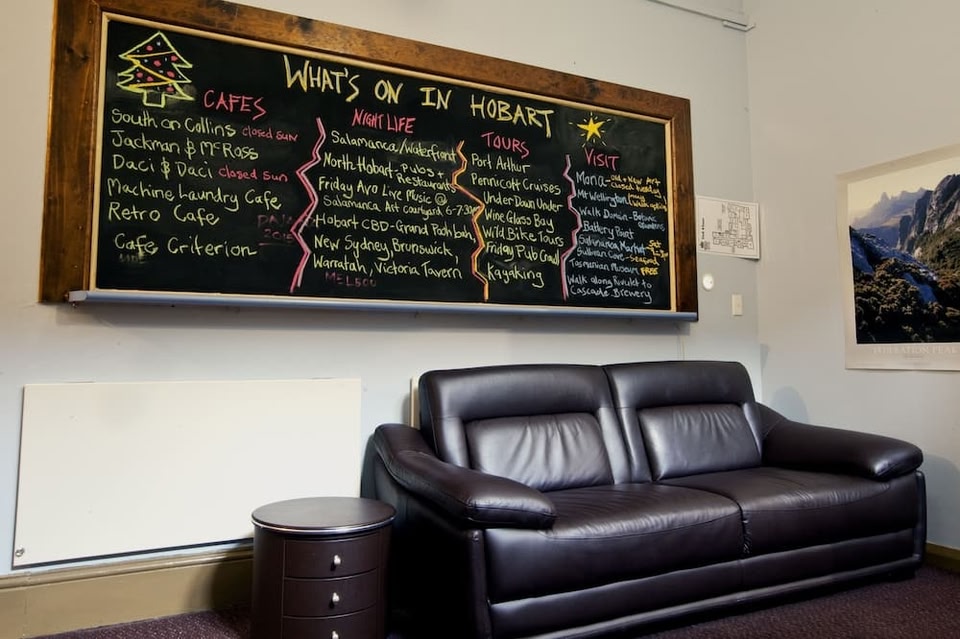 WHAT'S ON IN HOBART
CAFES
South on Collins closed sun
Jackman & McRoss
Daci & Daci closed sun
Machine Laundry Cafe
Retro Cafe
Cafe Criterion
NIGHT LIFE
Salamanca/Waterfront
North Hobart, Pubs +
Restaurants
Friday Avo Live Music @
Salamanca Art courtyard, 6-7:30pm
Hobart CBD-Grand Poohbah,
New Sydney, Brunswick,
Warratah, Victoria Tavern
TOURS
Port Arthur
Pennicott Cruises
Under Down Under
Wine Glass Bay
Wild Bike Tours
Friday Pub Crawl
Kayaking
VISIT
Mona - old + New Art
closed tuesday
Mt Wellington
Walk Domain - Botanic
Battery Point
Salamanca Market - Sat
Sullivan Cove - seafood
Tasmanian Museum FREE
Walk along Rivulet to
Cascade Brewery
FEDERATION PEAK